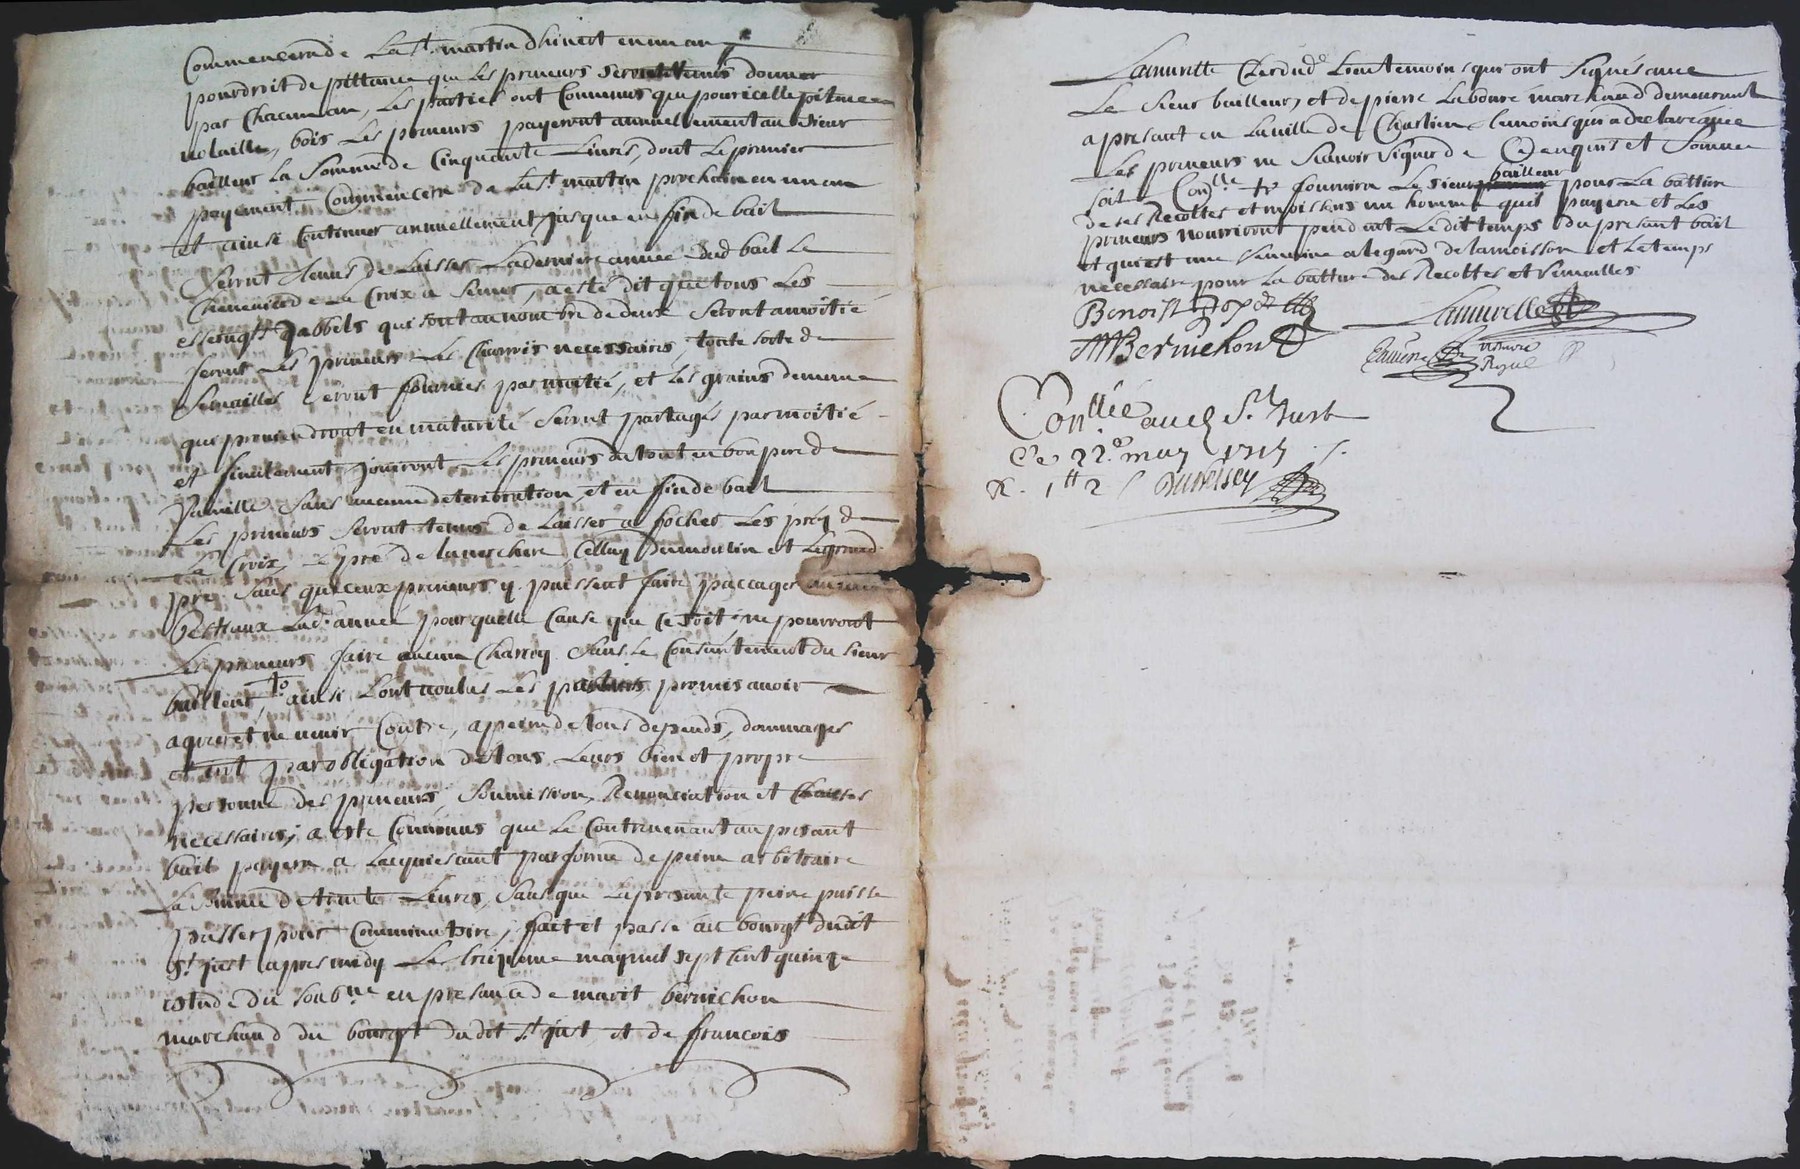 Commencera de la St martin dhivert en un an
pour droit de pittance que les preneurs seroient tenus donner
par chacun an, les parties ont convenus que pour icelle pitance
volaille, bois les preneurs payeront annuellement au sieur
bailleur la somme de cinquante livres, dont le premier
payement commencera de la St martin prochaine en un an
et ainsi continuer annuellement jusque en fin de bail
seront tenus de laisser la derniere année dud bail le
de la Croix a semer, a esté dit que tous les
qui sont au nombre de deux seront a moitié
feront les preneurs les charrois necessaires, toute sorte de
semailles seront fournies par moitié, et les grains
que prouviendront en maturité seront partagés par moitié
et finallement jouiront les preneurs du tout en bon pere de
famille sans aucune deterioration, et en fin de bail
les preneurs seront tenus de laisser a focher les prez de
la Croix, le pré de la verchere, celluy du moulin et le grand
pre sans que ceux preneurs y puissent faire paccager aucuns
bestiaux lad. année pour quelle cause que ce soit, ne pourront
les preneurs faire aucun charroy sans le consentement du sieur
bailleur, ainsi l'ont voulus les parties, promis avoir
agreer et ne venir contre, a peine de tous depends, dommages
et int par obligation de tous leurs bien et propre
personne des preneurs, soumission, renonciation et clauses
necessaires; a esté convenus que le contrevenant au present
bail payera a lacquiesçant par forme de peine arbitraire
la somme de trente livres, sans que la presente peine puisse
passer pour comminatoire, fait et passé au bourgt dudit
St just apres midy le troizieme may mil sept cent quinze
estude du soubne en presance de marit bernichon
marchand du bourgt dudit St just et de francois
Lanurelle Clerc dud. lieu temoins qui ont signés avec
le sieur bailleur, et de pierre labouré marchand demeurant
a presant en la ville de Charlieu temoins qui a declaré avec
les preneurs ne scavoir signer de ce enquis et sommé
soit Conlle & fournira le sieur bailleur pour la batture
de ses recoltes et moissons un homme quil payera et les
preneurs nourriront pendant le dit temps du presant bail
et qui est une semaine a legard de la moisson et le temps
necessaire pour la batture des recoltes et semailles
Benoist
Bernichon
Lanurelle
notaire
Royal
Conllée aud St Just
Ce 22e may 1715
R. 1tt 2s